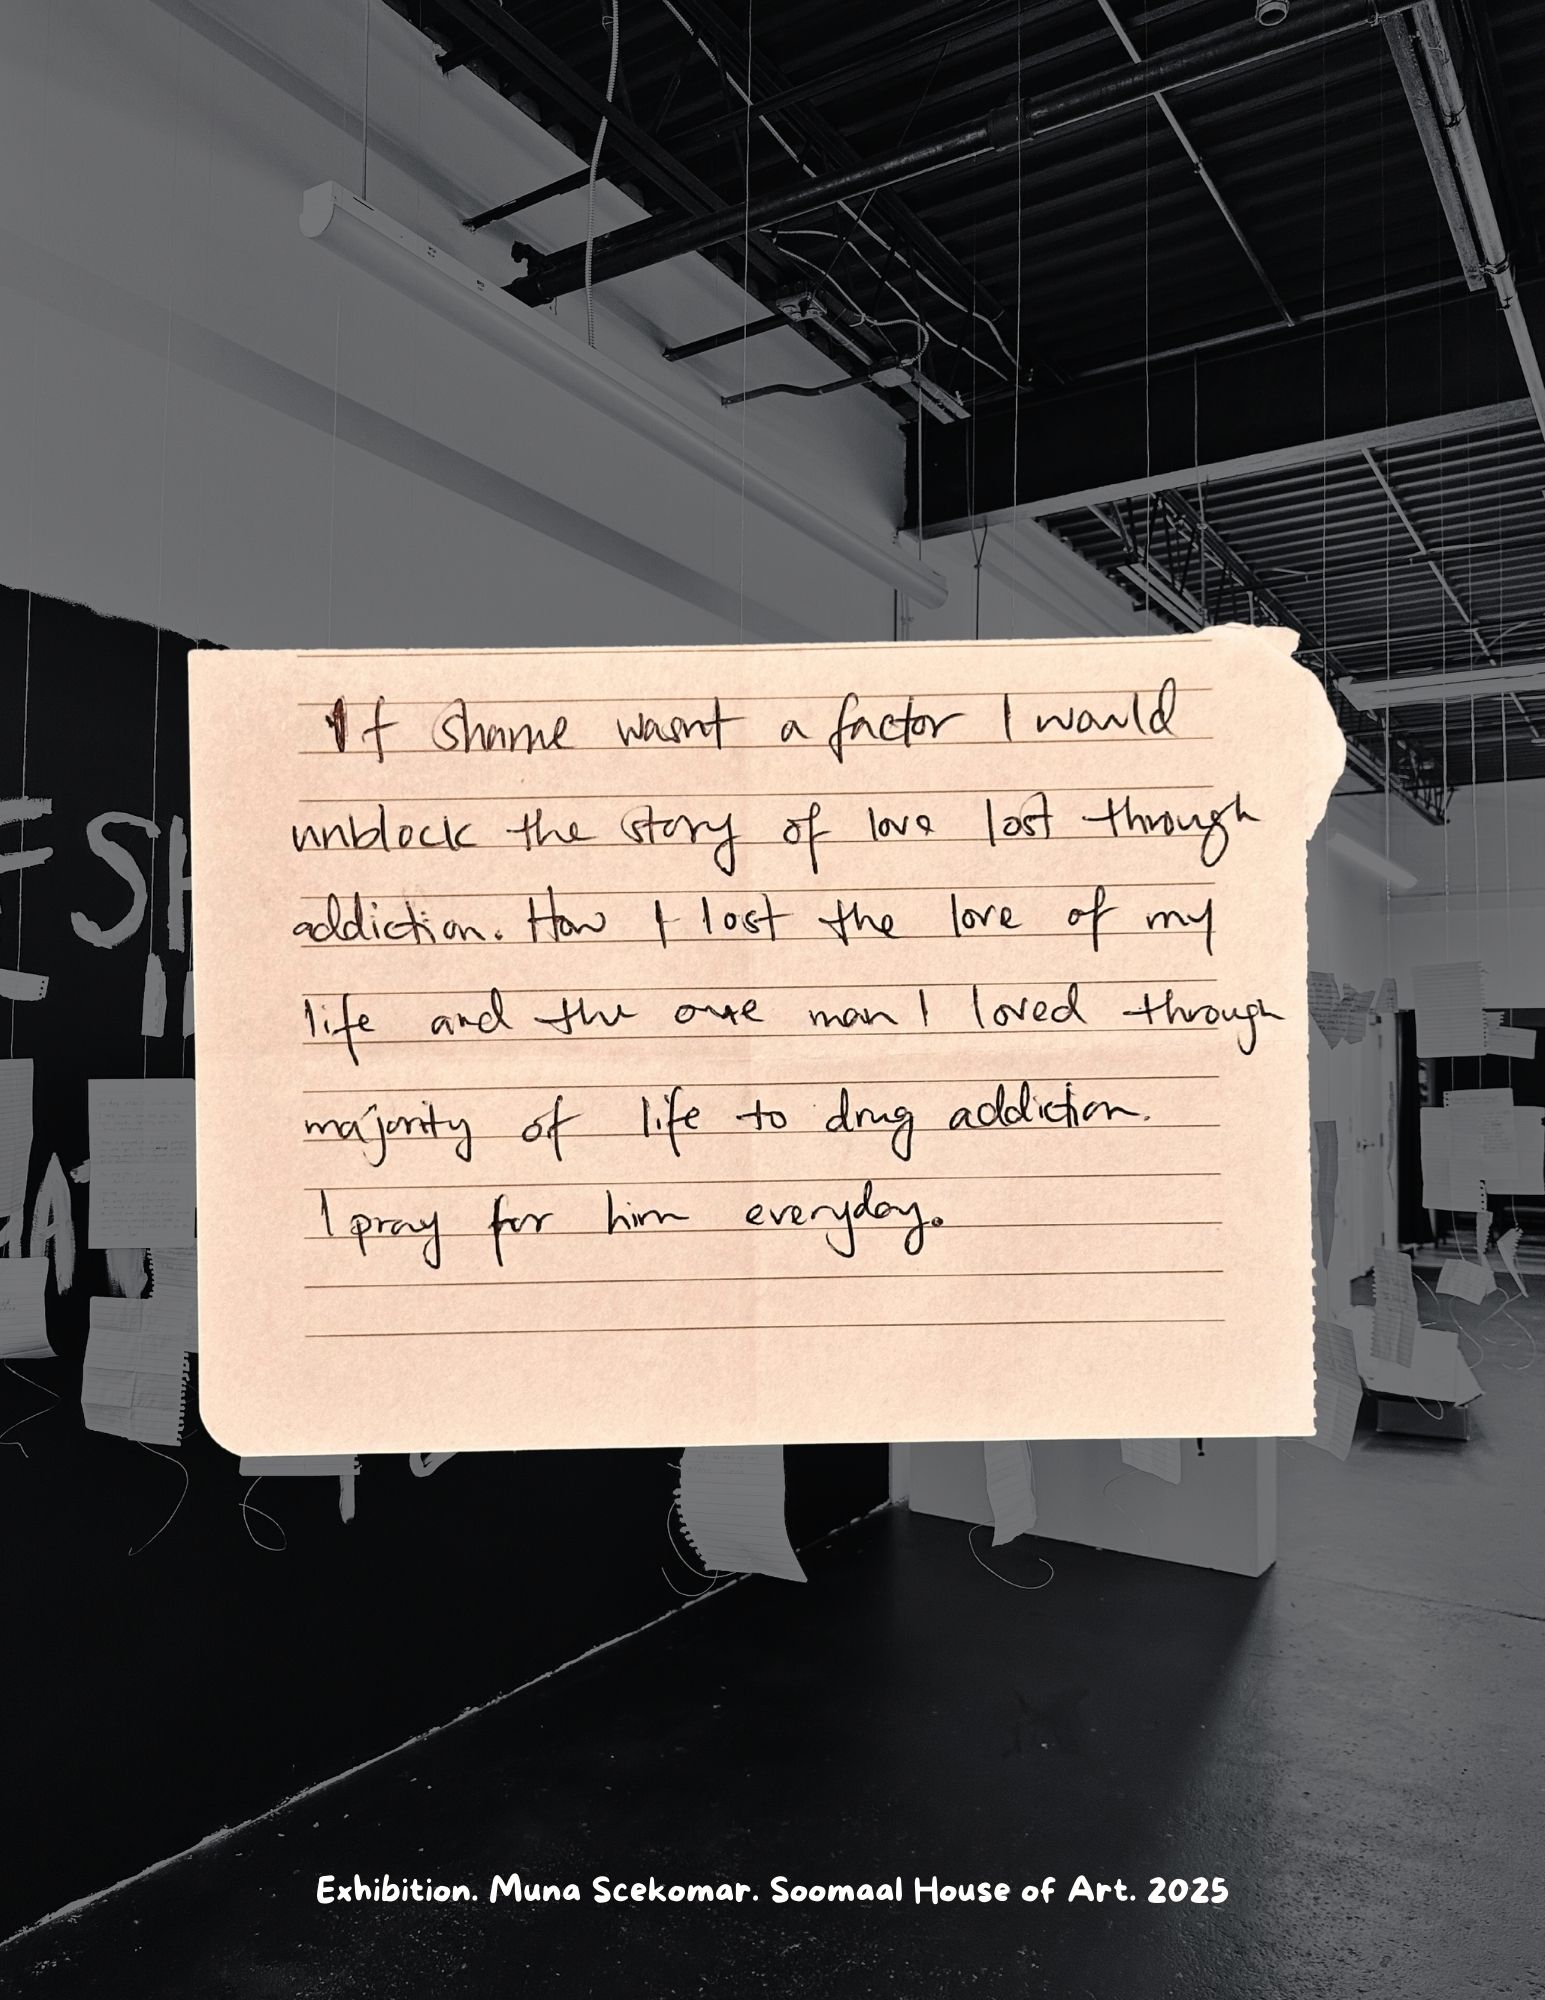 If shame wasnt a factor I would
unblock the story of love lost through
addiction. How I lost the love of my
life and the one man I loved through
majority of life to drug addiction.
I pray for him everyday.
Exhibition. Muna Scekomar. Soomaal House of Art. 2025